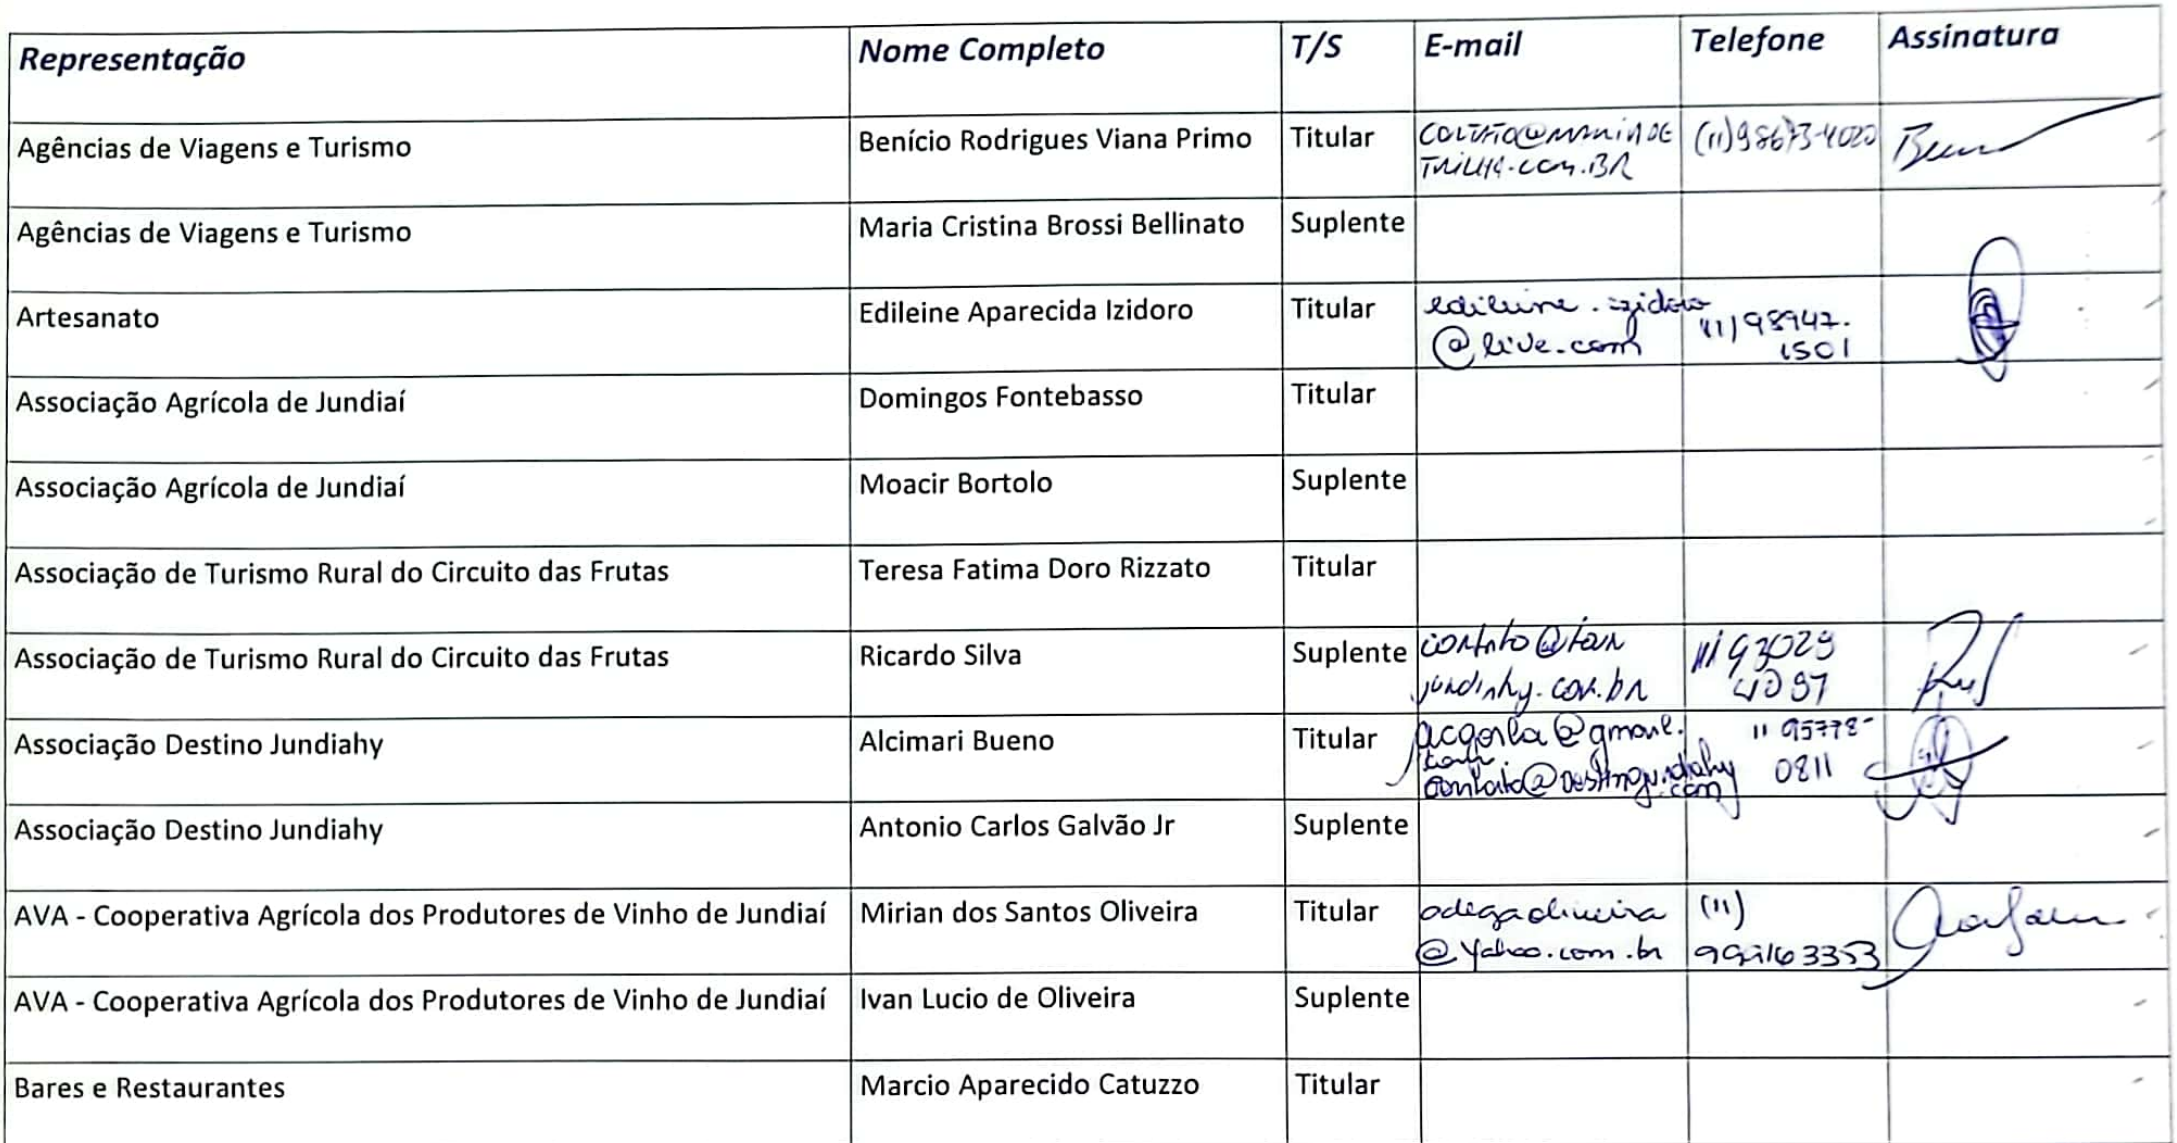 Representação Nome Completo T/S E-mail Telefone Assinatura
Agências de Viagens e Turismo Benício Rodrigues Viana Primo Titular (11)98673-4020
.com.BR
Agências de Viagens e Turismo Maria Cristina Brossi Bellinato Suplente
Artesanato Edileine Aparecida Izidoro Titular edileine.izidoro 11)98947.
@live.com 1501
Associação Agrícola de Jundiaí Domingos Fontebasso Titular
Associação Agrícola de Jundiaí Moacir Bortolo Suplente
Associação de Turismo Rural do Circuito das Frutas Teresa Fatima Doro Rizzato Titular
Associação de Turismo Rural do Circuito das Frutas Ricardo Silva Suplente contato@tour 11 93029
jundiahy.com.br 4097
Associação Destino Jundiahy Alcimari Bueno Titular acgorla@gmail. 11 95778-
com. 0811
contato@destinojundiahy
.com
Associação Destino Jundiahy Antonio Carlos Galvão Jr Suplente
AVA - Cooperativa Agrícola dos Produtores de Vinho de Jundiaí Mirian dos Santos Oliveira Titular adegaoliveira (11)
@yahoo.com.br
AVA - Cooperativa Agrícola dos Produtores de Vinho de Jundiaí Ivan Lucio de Oliveira Suplente
Bares e Restaurantes Marcio Aparecido Catuzzo Titular